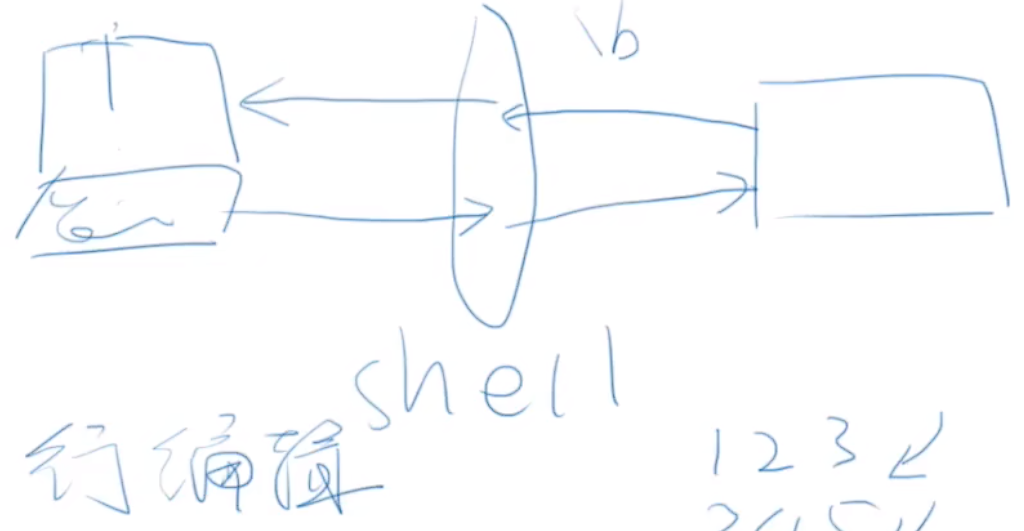 \b
shell
行编辑
1 2 3 ↙